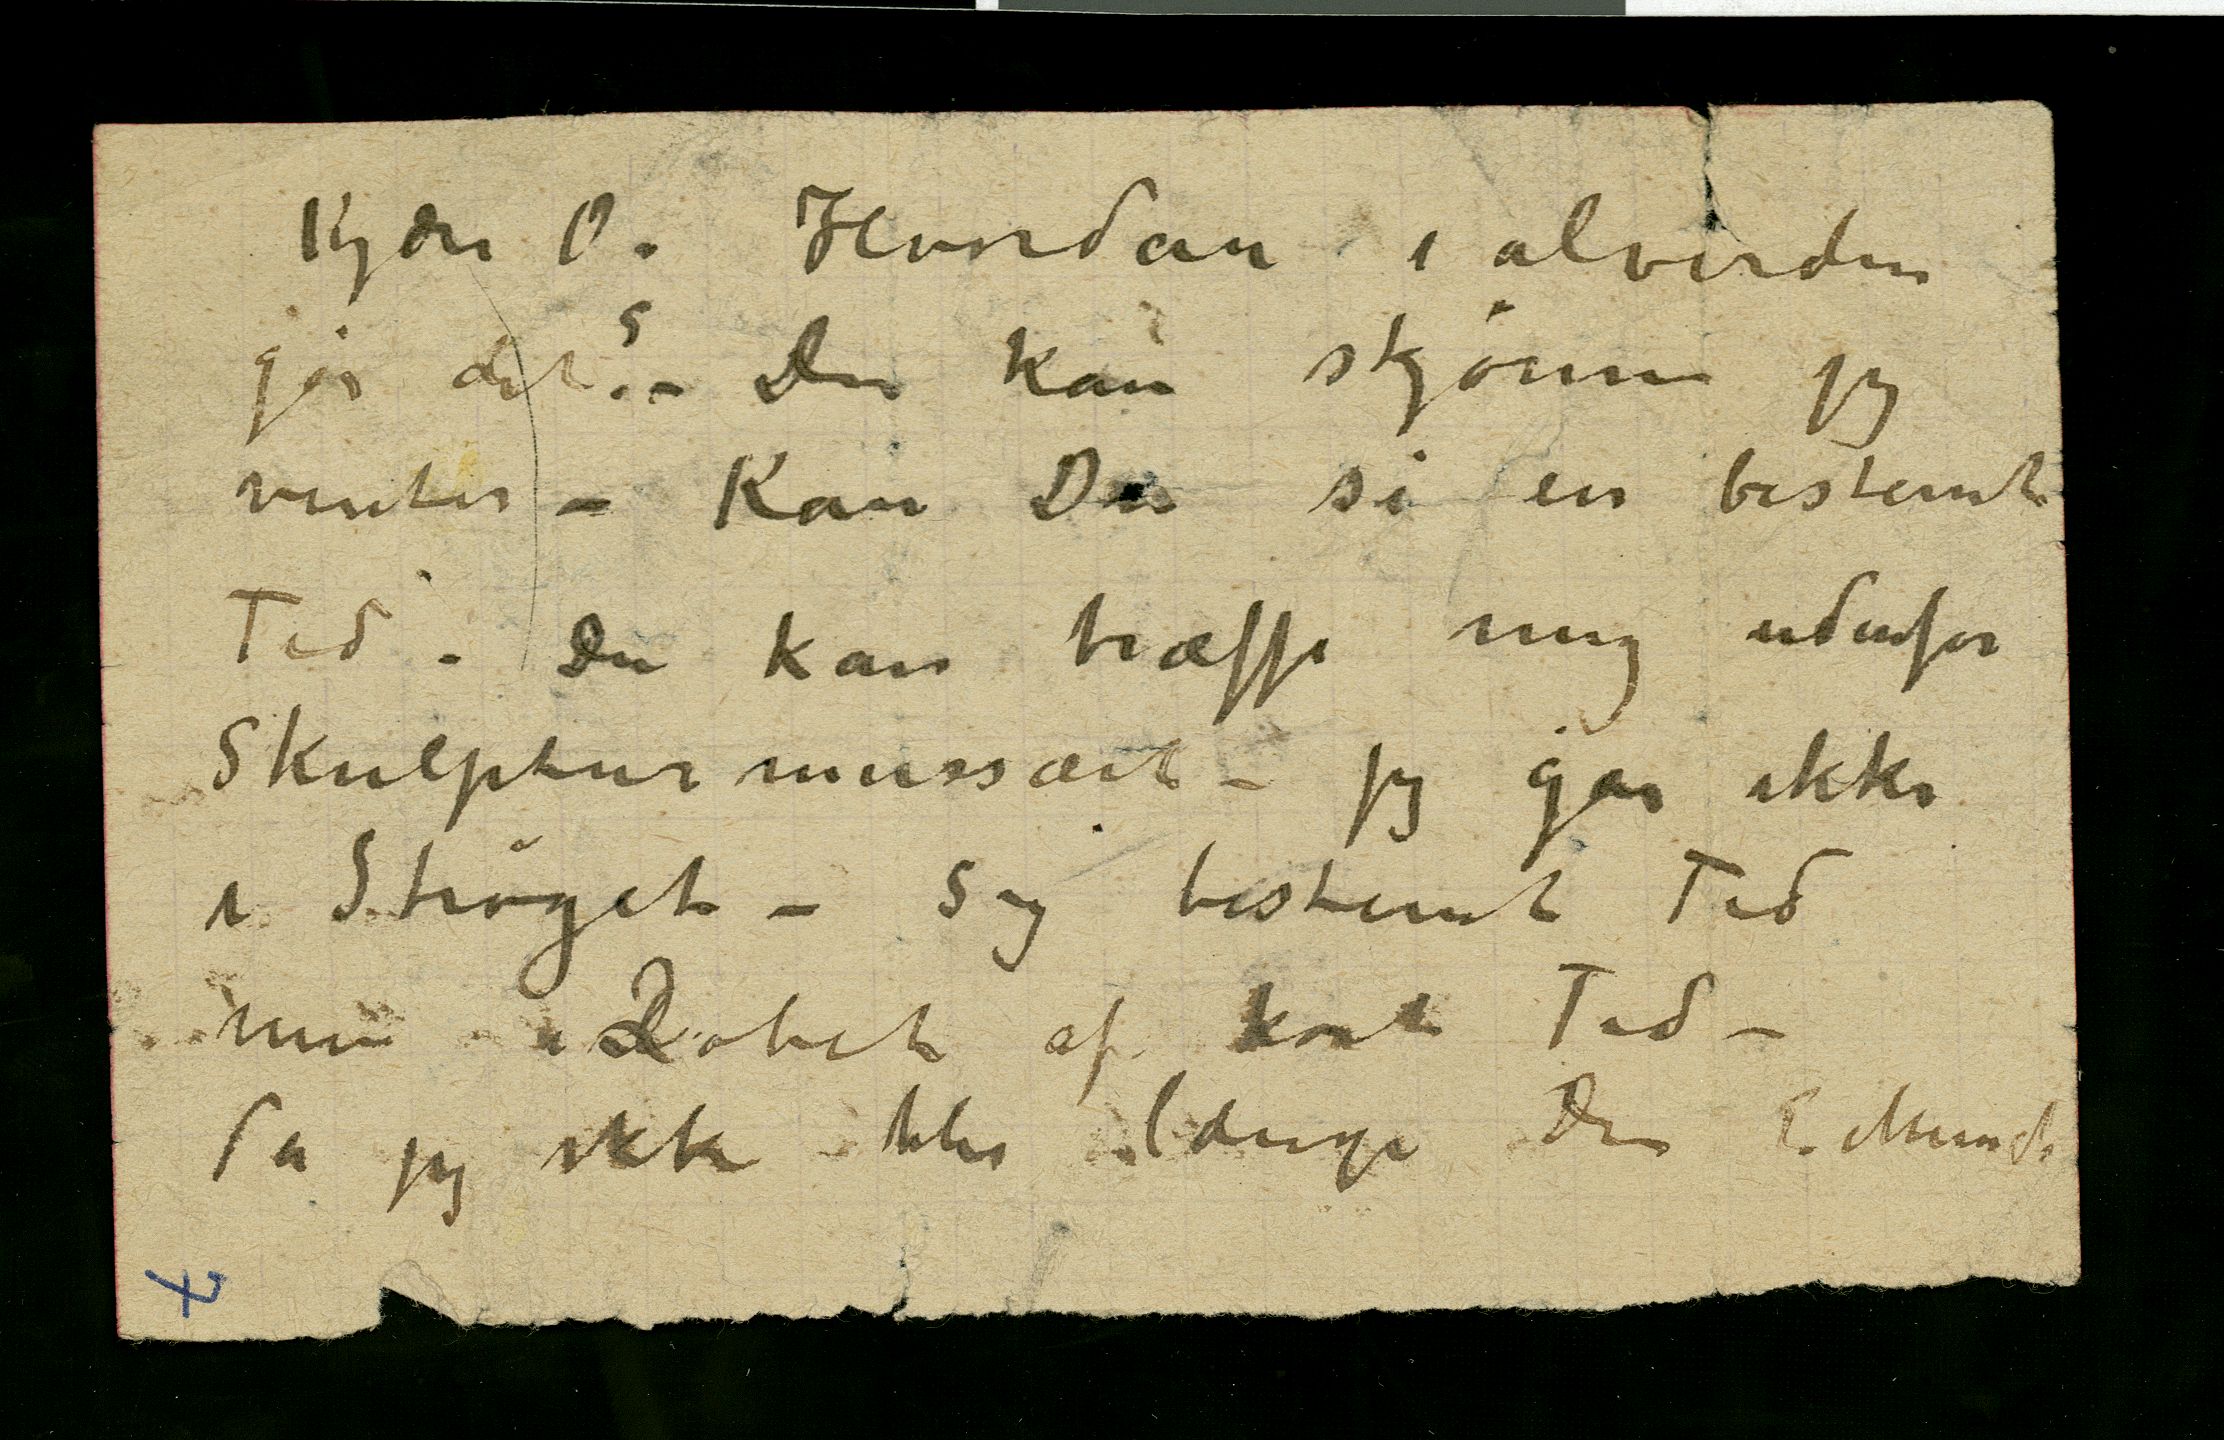 Kjære O. Hvordan i alverden
går det? – Du kan skjönne jeg
venter – Kan Du si en bestemt
Tid – Du kan træffe mig udenfor
Skulpturmussæet – jeg går ikke
i Ströget – Sig bestemt Tid
men i Löbet af kort Tid –
da jeg ikke blir længe Din E. Munch